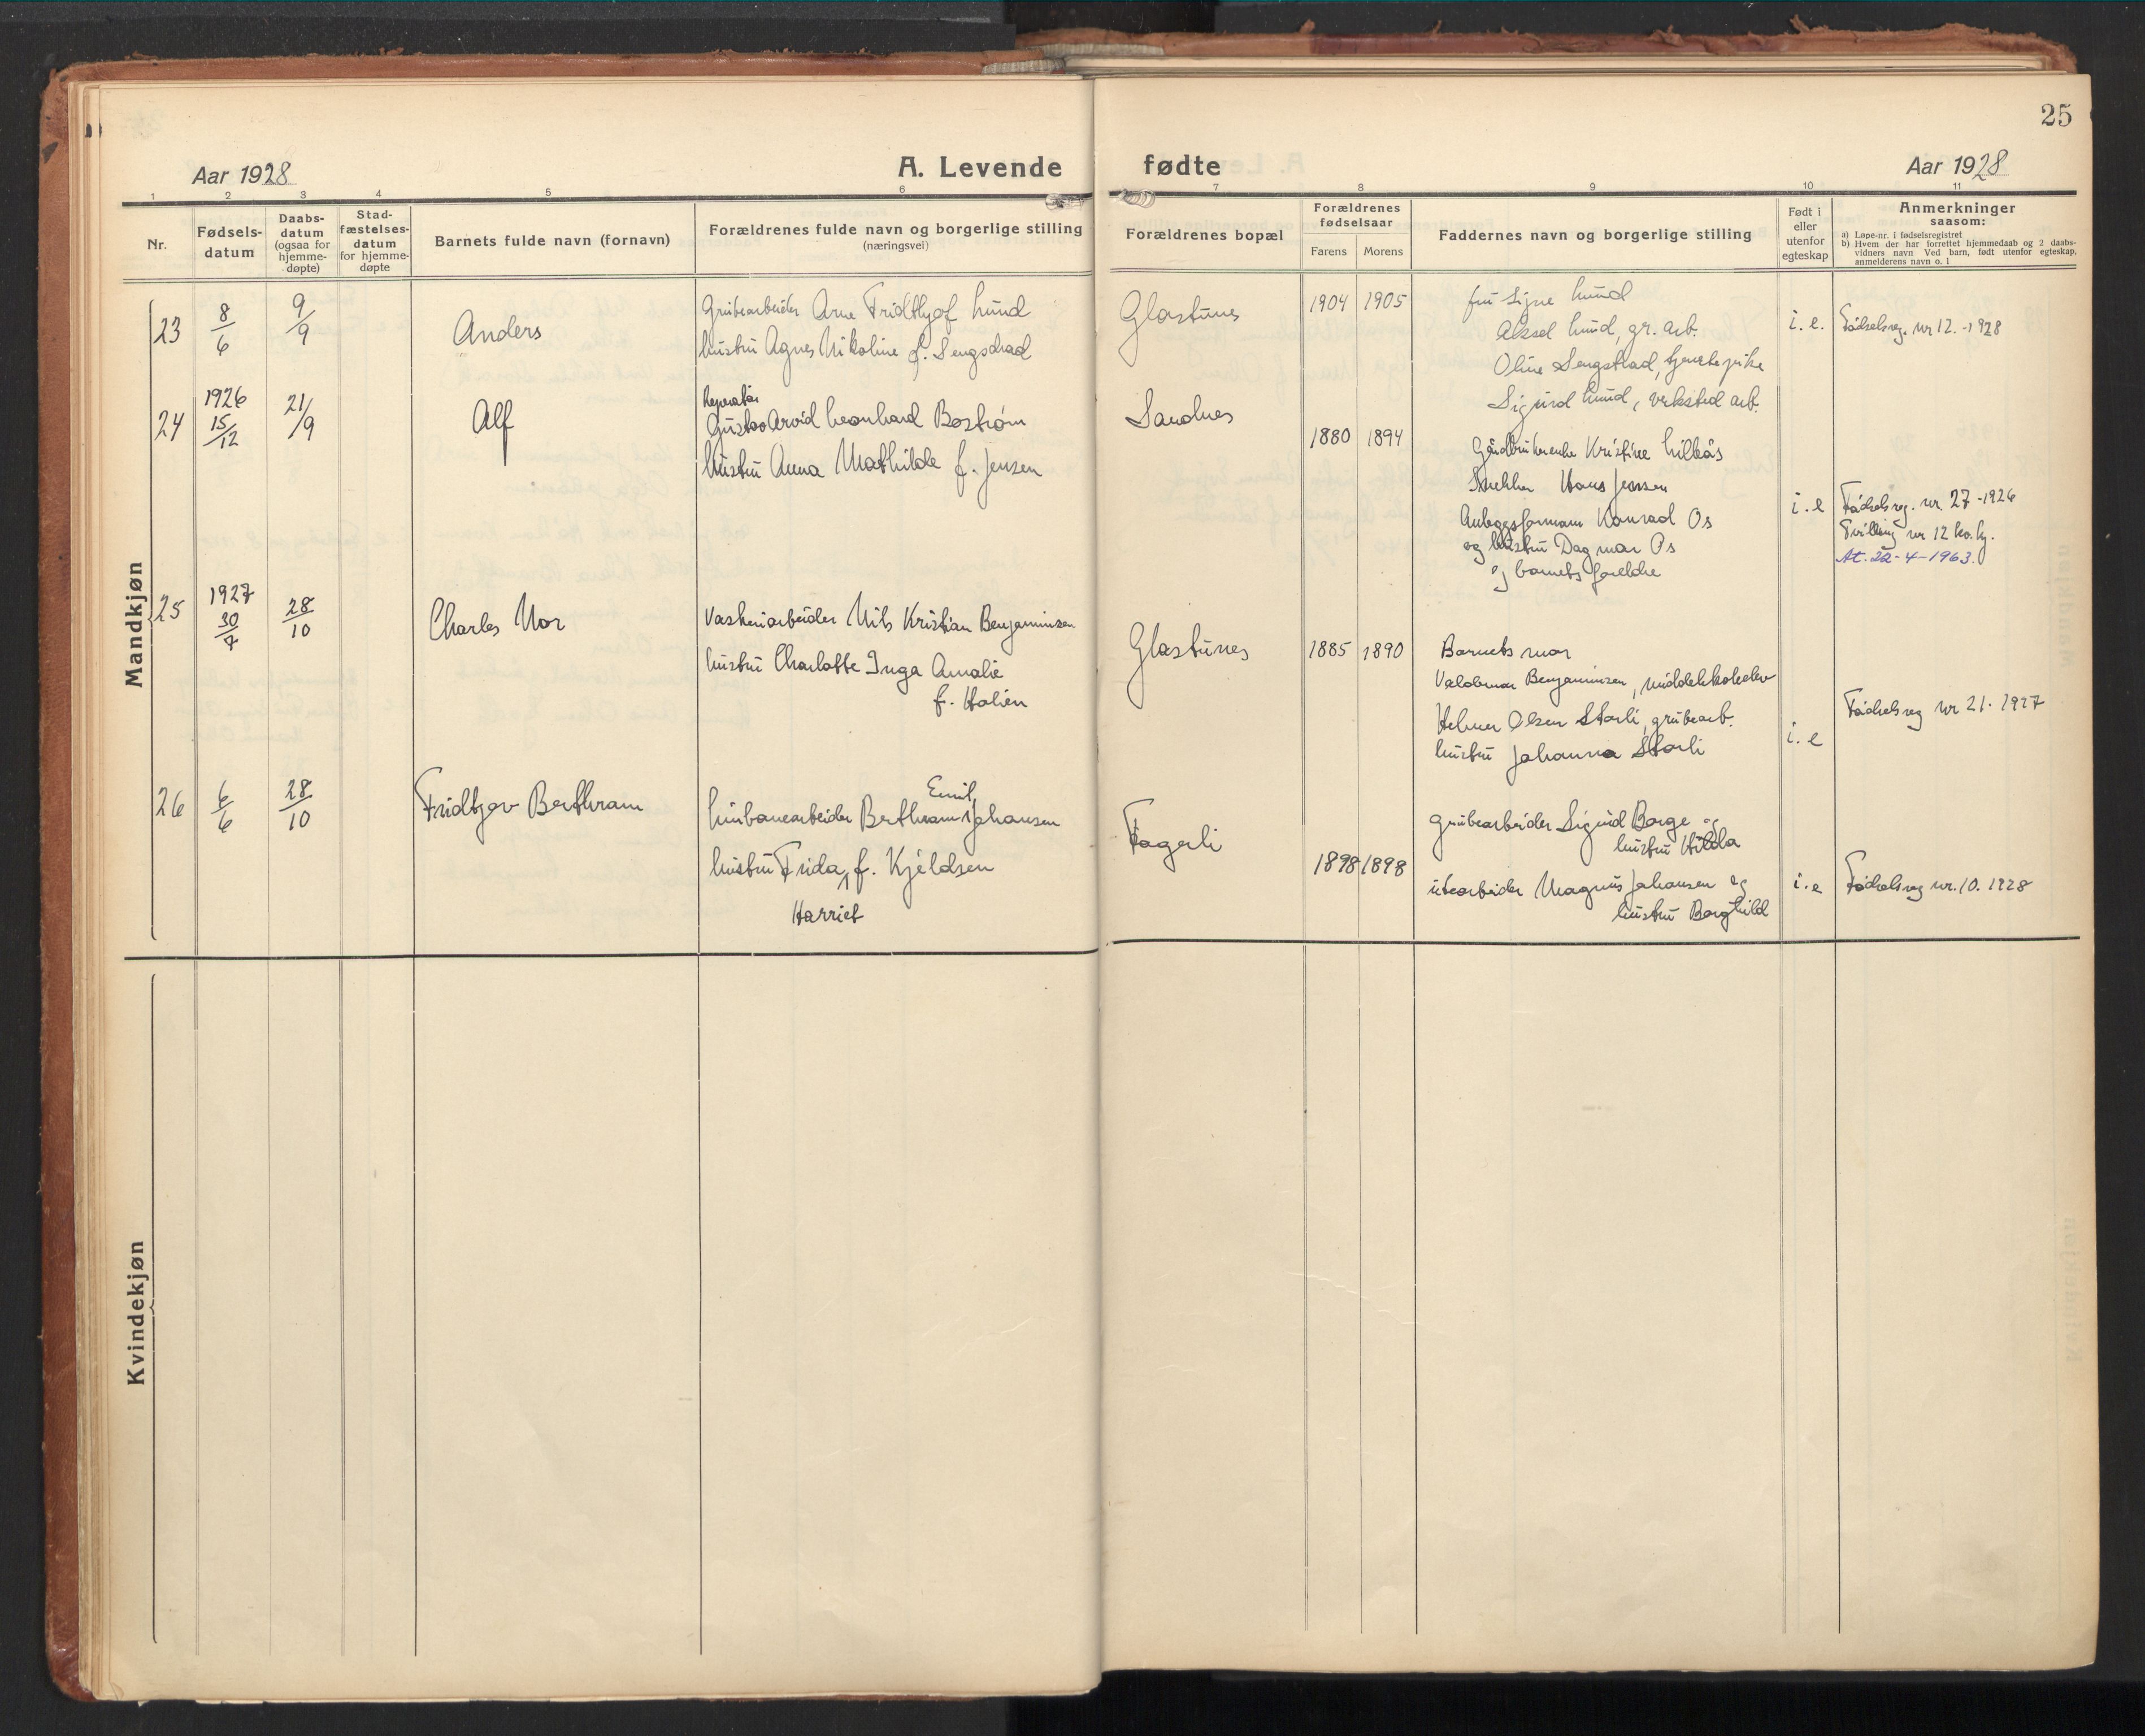 25
Aar 1928
A. Levende fødte
Aar 1928
1 2 3 4 5 6 7 8 9 10 11
Nr.
Fødsels-
datum
Daabs-
datum
(ogsaa for
hjemme-
døpte)
Stad-
fæstelses-
datum
for hjemme-
døpte
Barnets fulde navn (fornavn)
Forældrenes fulde navn og borgerlige stilling
(næringsvei)
Forældrenes bopæl
Forældrenes
fødselsaar
Farens Morens
Faddernes navn og borgerlige stilling
Født i
eller
utenfor
egteskap
Anmerkninger
saasom:
a) Løpe-nr. i fødselsregistret
b) Hvem der har forrettet hjemmedaab og 2 daabs-
vidners navn Ved barn, født utenfor egteskap,
anmelderens navn o. l
Mandkjøn
23 8/6 9/9 Anders
Grubearbeider Arne Fridthjof Lund
hustru Agnes Nikoline f. Sengstad
Glastunes
1904 1905
fru Signe Lund
Aksel Lund, gr. arb.
Oline Sengstad, tjenestepike
Sigurd Lund, verksted arb.
i. e.
Fødselsreg. nr 12. - 1928
24 1926 15/12 21/9 Alf
Reperatør
Gustav Arvid Leonhard Bostrøm
hustru Anna Mathilde f. Jensen
Sandnes
1880 1894
Gaardbrukerenke Kristine Lilleås
Snekker Hans Jensen
Anleggsformann Konrad Os
og hustru Dagmar Os
og barnets foreldre
i. e
Fødselsreg. nr. 27 - 1926
Tvilling nr 12 kv. kj.
At. 22 - 4 - 1963.
25 1927 30/7 28/10 Charles Nor
Vaskeriarbeider Nils Kristian Benjaminsen
hustru Charlotte Inga Amalie
f. Halien
Glastunes
1885 1890
Barnets mor
Valdemar Benjaminsen, middelskoleelev
Helmer Olsen Storli, grubearb.
hustru Johanna Storli
i. e
Fødselsreg nr 21. 1927
26 6/6 28/10 Fridtjov Berthram
Emil
Grubanearbeider Berthram Johansen
hustru Frida, f. Kjeldsen
Harriet
Fagerli
1898 1898
grubearbeider Sigurd Borge og
hustru Hilda
utearbeider Magnus Johansen og
hustru Borghild
i. e
Fødselsreg nr. 10. 1928
Kvindekjøn